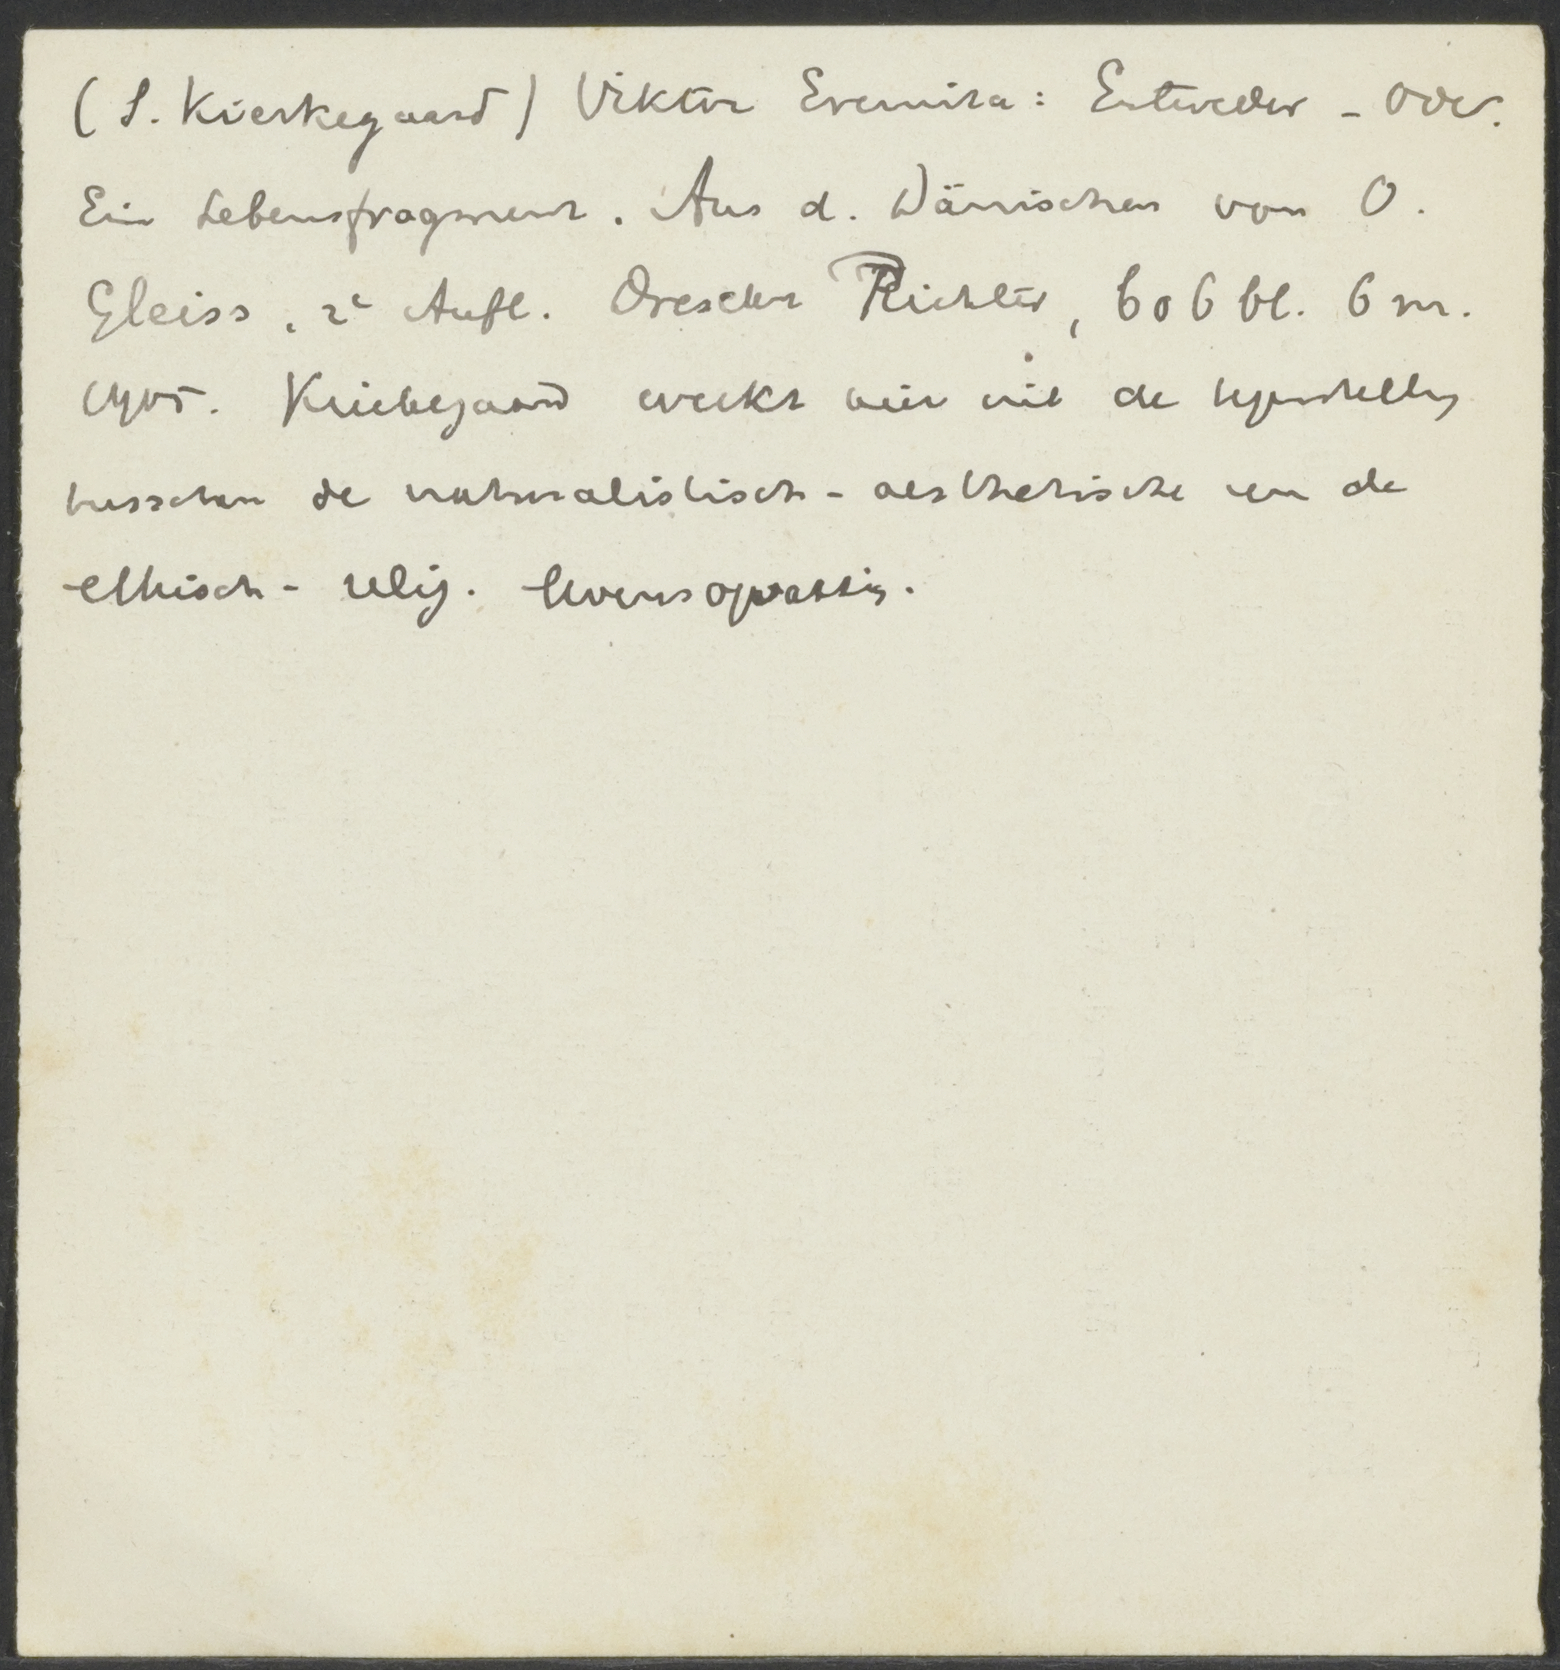 (S. Kierkegaard) Viktor Eremita: Entweder - Oder.
Ein Lebensfragment. Aus d. Dänischen von O.
Gleiss, 2e Aufl. Dresden Richter, 606 bl. 6 m.
1905. Kierkegaard werkt hier uit de tegenstelling
tusschen de naturalistisch - aesthetische en de
ethisch - relig. levensopvatting.